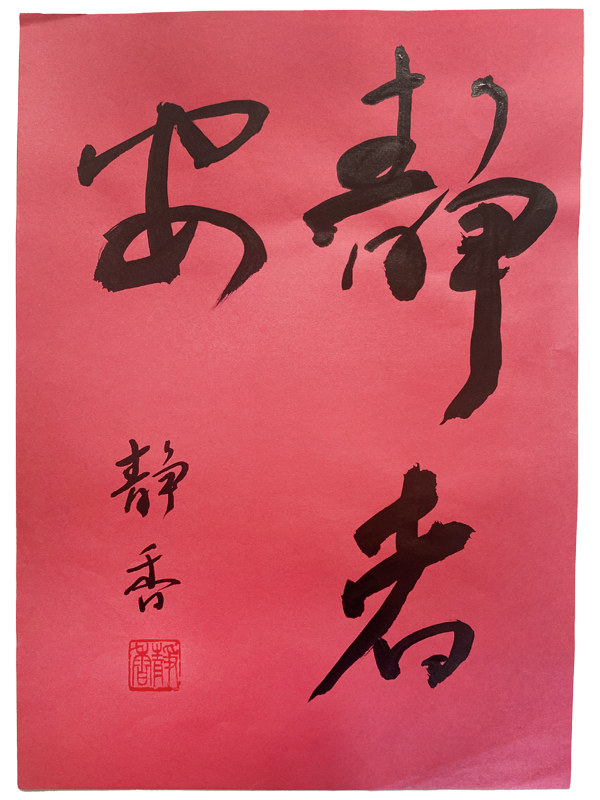 静者
安
静香
靜香